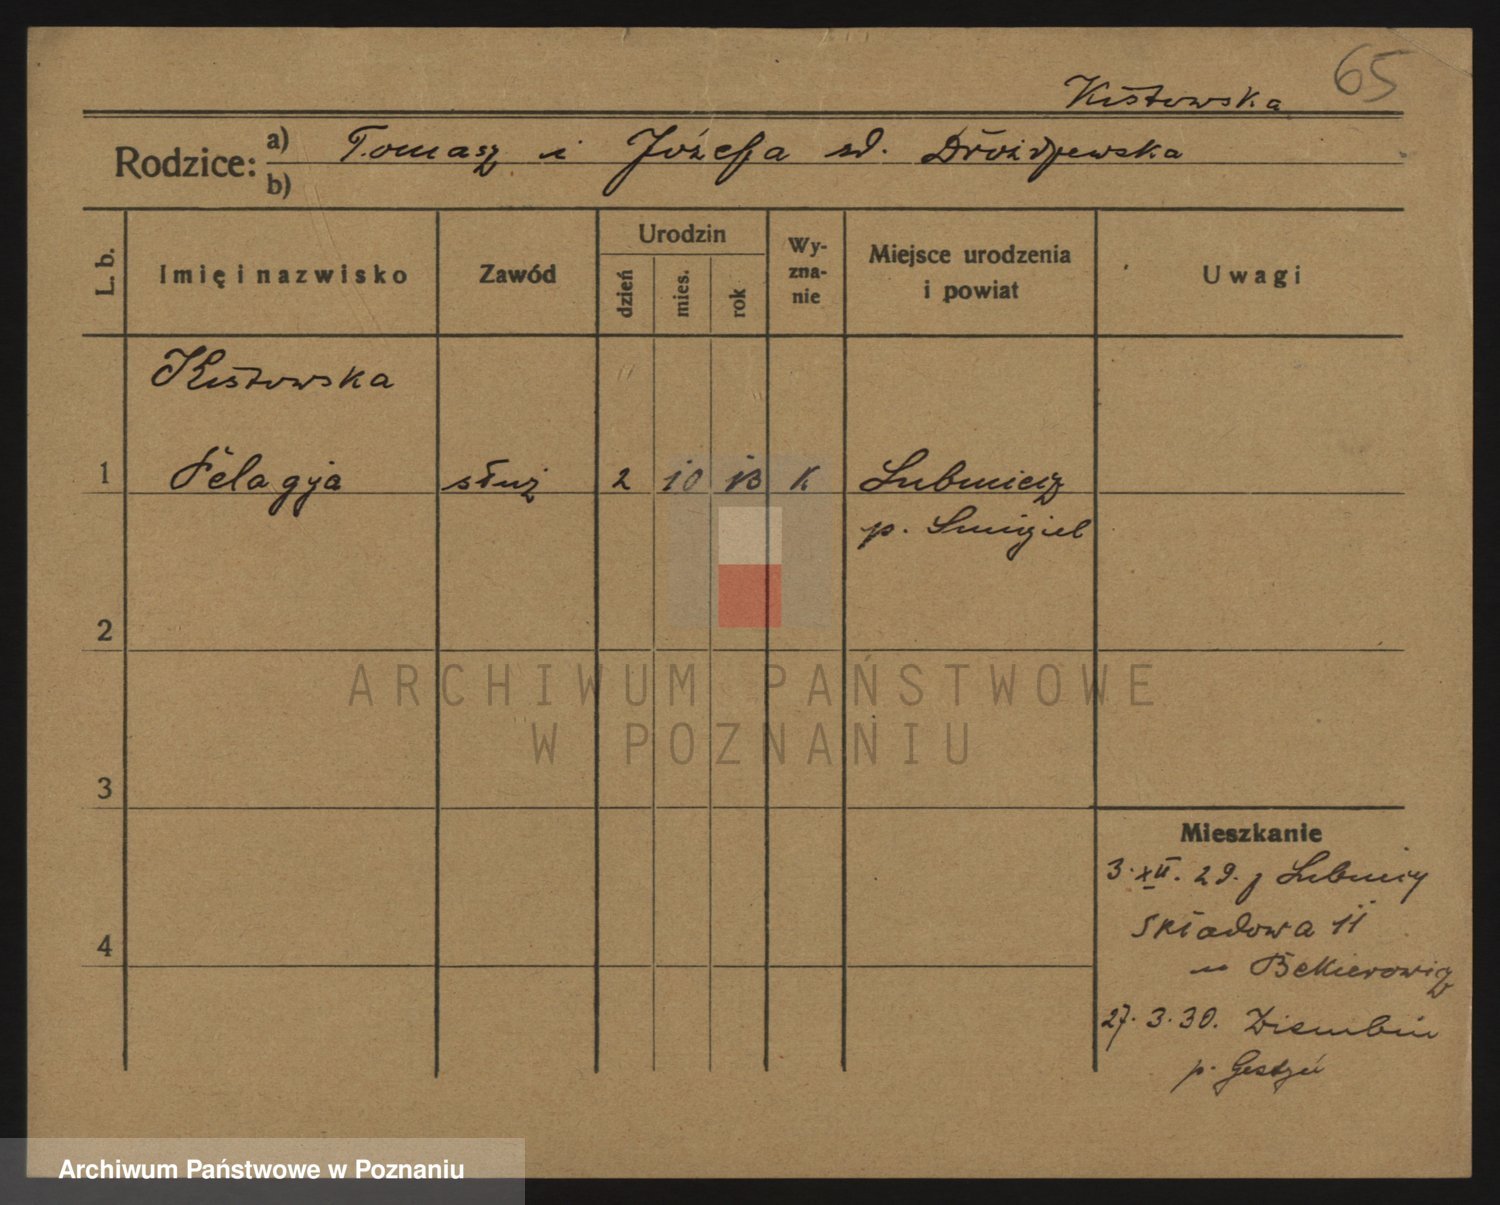 65
Kistowska
Rodzice: a) Tomasz i Józefa zd. Drożdżewska
b)
L. b.
Imię i nazwisko
Zawód
Urodzin
dzień
mies.
rok
Wy-
zna-
nie
Miejsce urodzenia
i powiat
Uwagi
Kistowska
1 Pelagja służ 2 10 13 K Lubnicz
p. Śmigiel
2
ARCHIWUM PAŃSTWOWE
W POZNANIU
3
Mieszkanie
3.XII.29. z Lubnicy
4
Składowa 11
u Bekierowicz
27.3.30.
p.
Archiwum Państwowe w Poznaniu